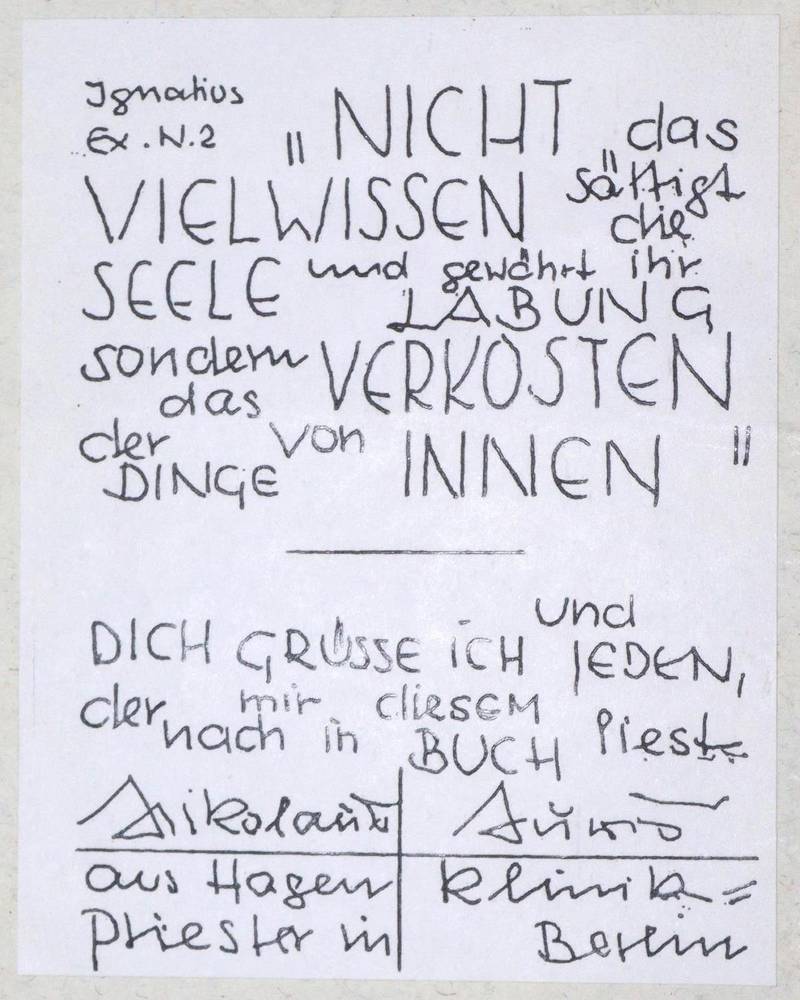 Ignatius
Ex. N. 2
„NICHT das
VIELWISSEN sättigt
die
SEELE und gewährt ihr
LABUNG
sondern VERKOSTEN
das
der von INNEN"
DINGE
und
DICH GRÜSSE ICH JEDEN,
der mir diesem
nach in BUCH liest
Nikolaus
aus Hagen Klinik=
Priester in Berlin